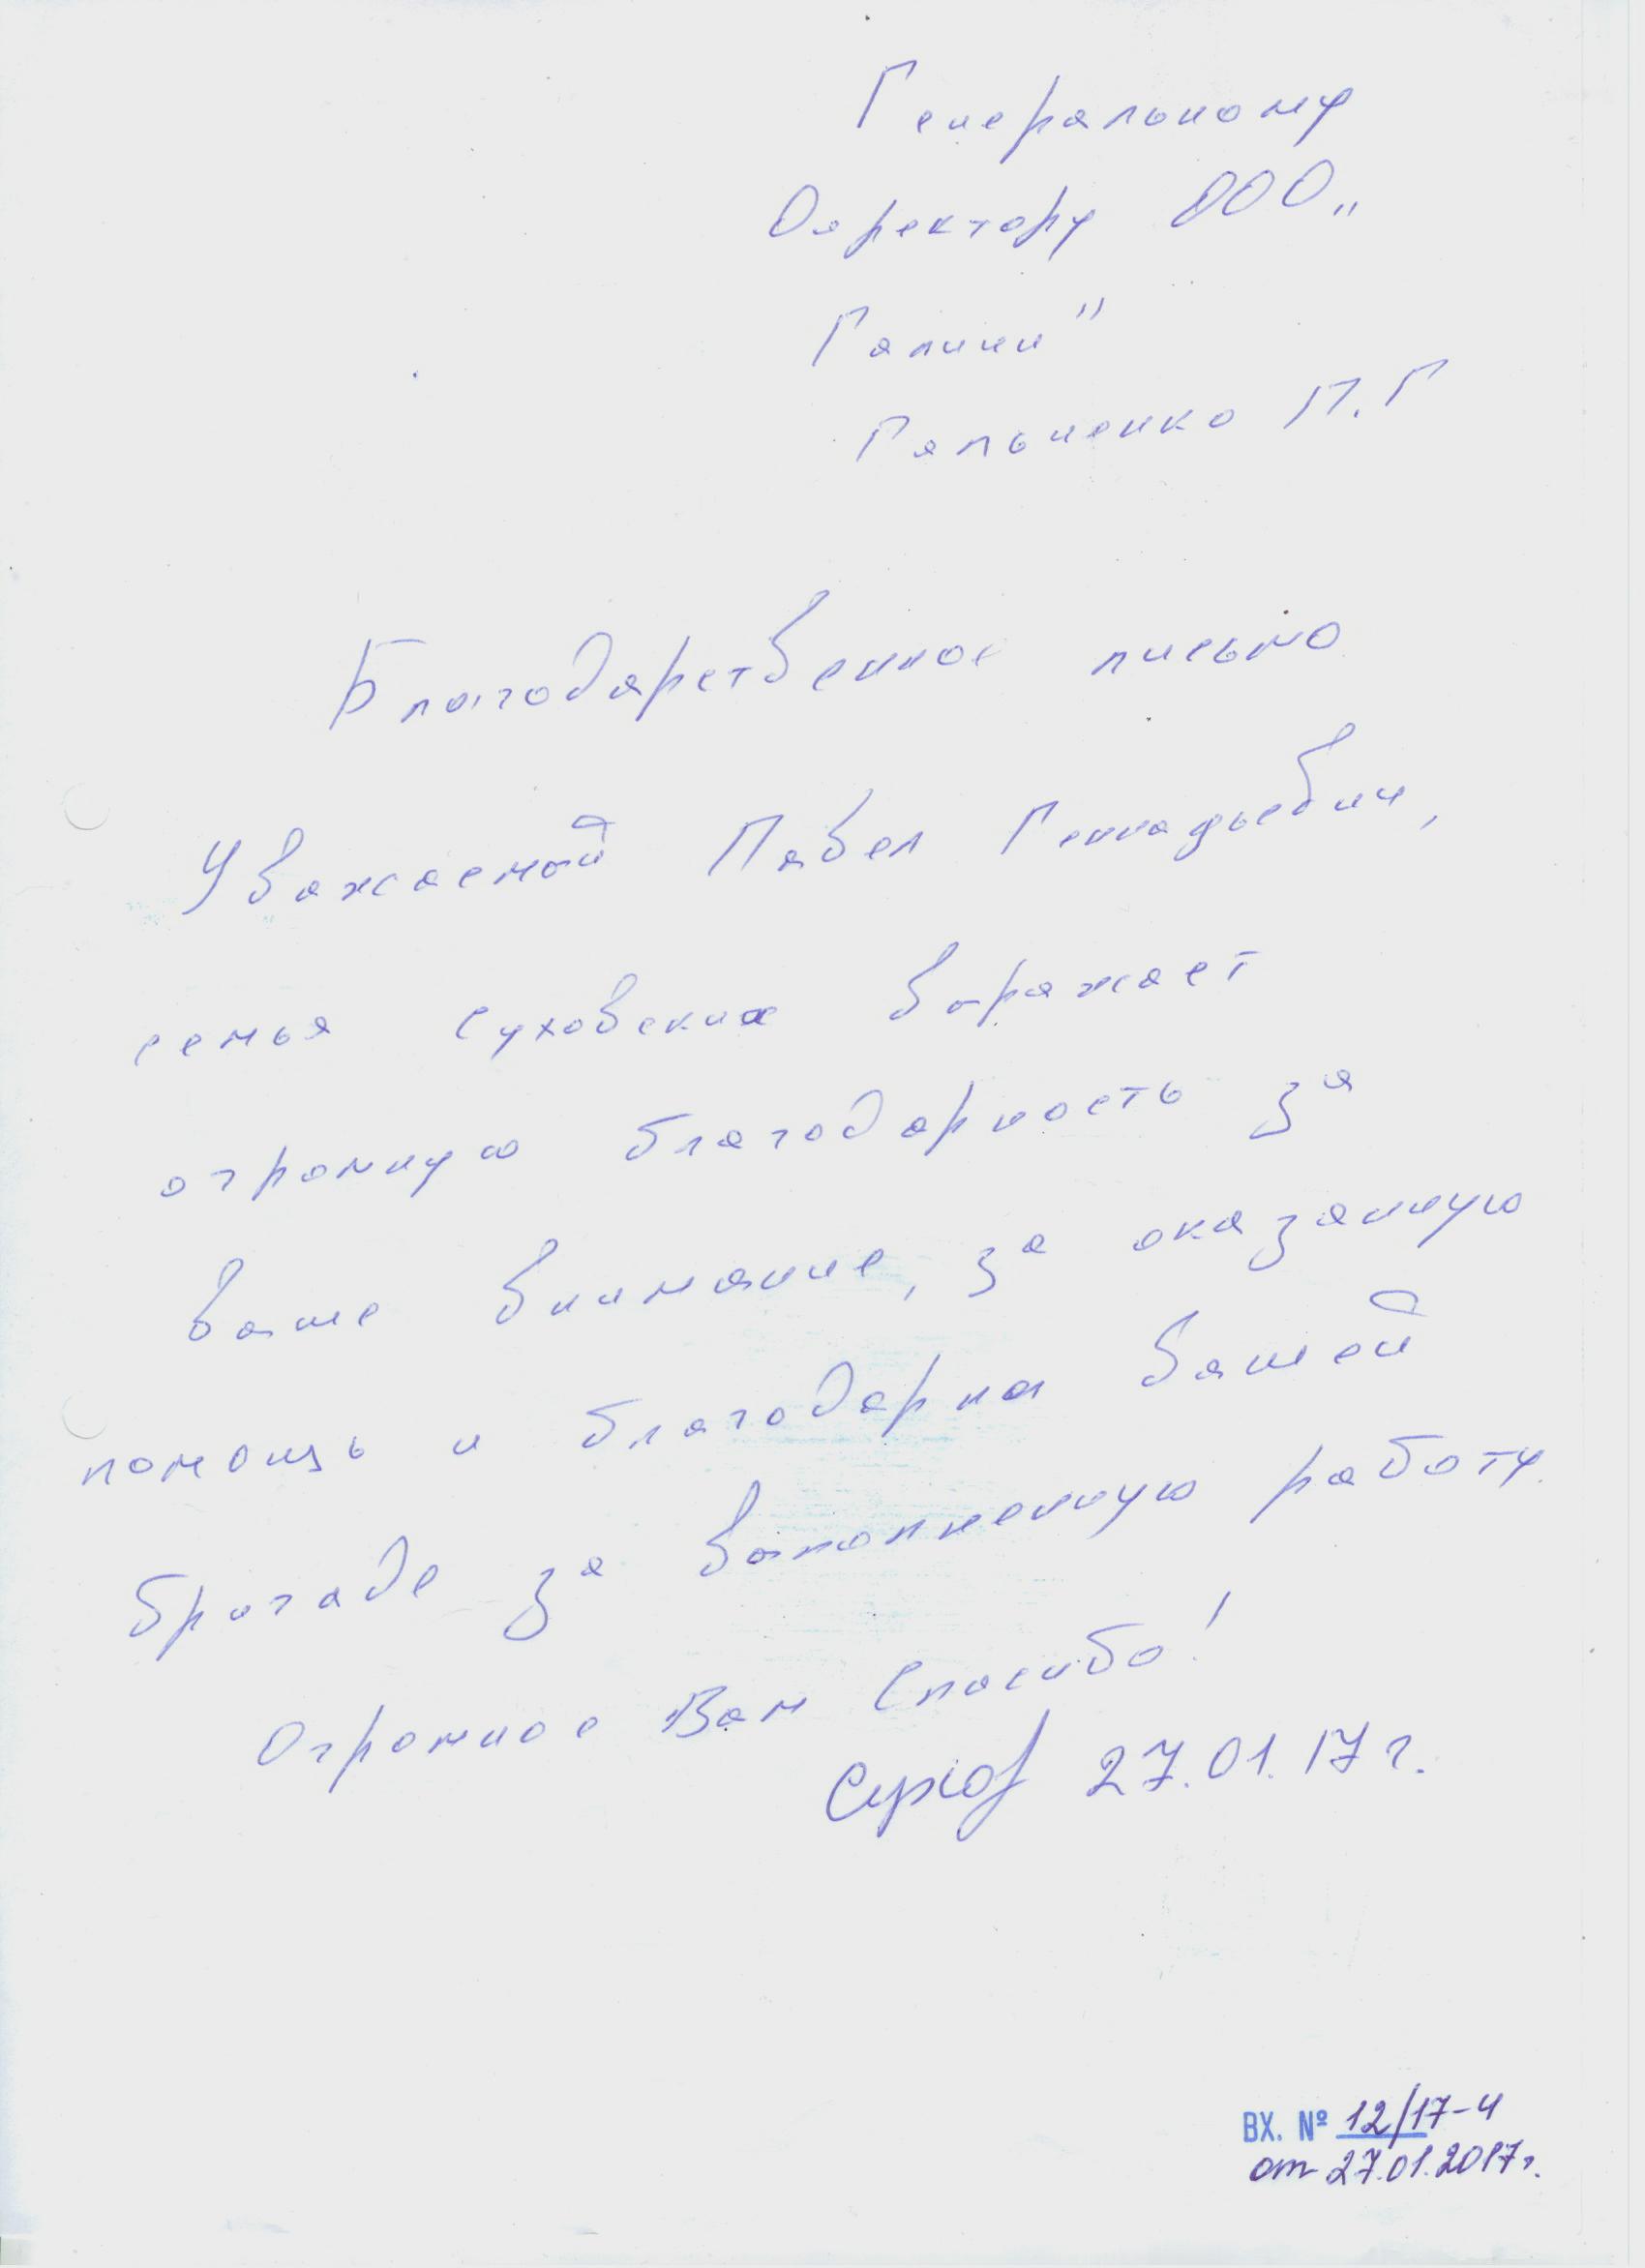 Генеральному
Директору ООО „
Галини"
Гальченко П.Г
Благодарственное письмо
Уважаемый Павел Геннадьевич,
семья Суховских выражает
огромную благодарность за
ваше внимание, за оказанную
помощь и благодарны вашей
бригаде за выполненную работу.
Огромное Вам Спасибо!
Сухов 27.01.17 г.
ВХ. № 12/17-ч
от 27.01.2017г.